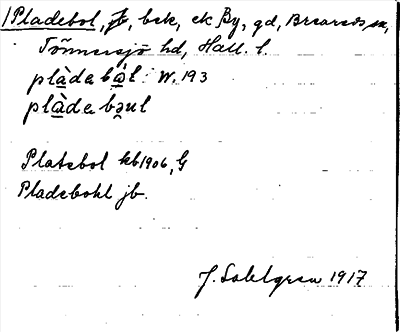 Pladebol, jb, bek, ek By, gd, Breareds sn,
Tönnersjö hd, Hall. l.
plàdebàl W. 193
plàdebəul
Platebol kb 1906, G
Pladebohl jb.
J. Sahlgren 1917